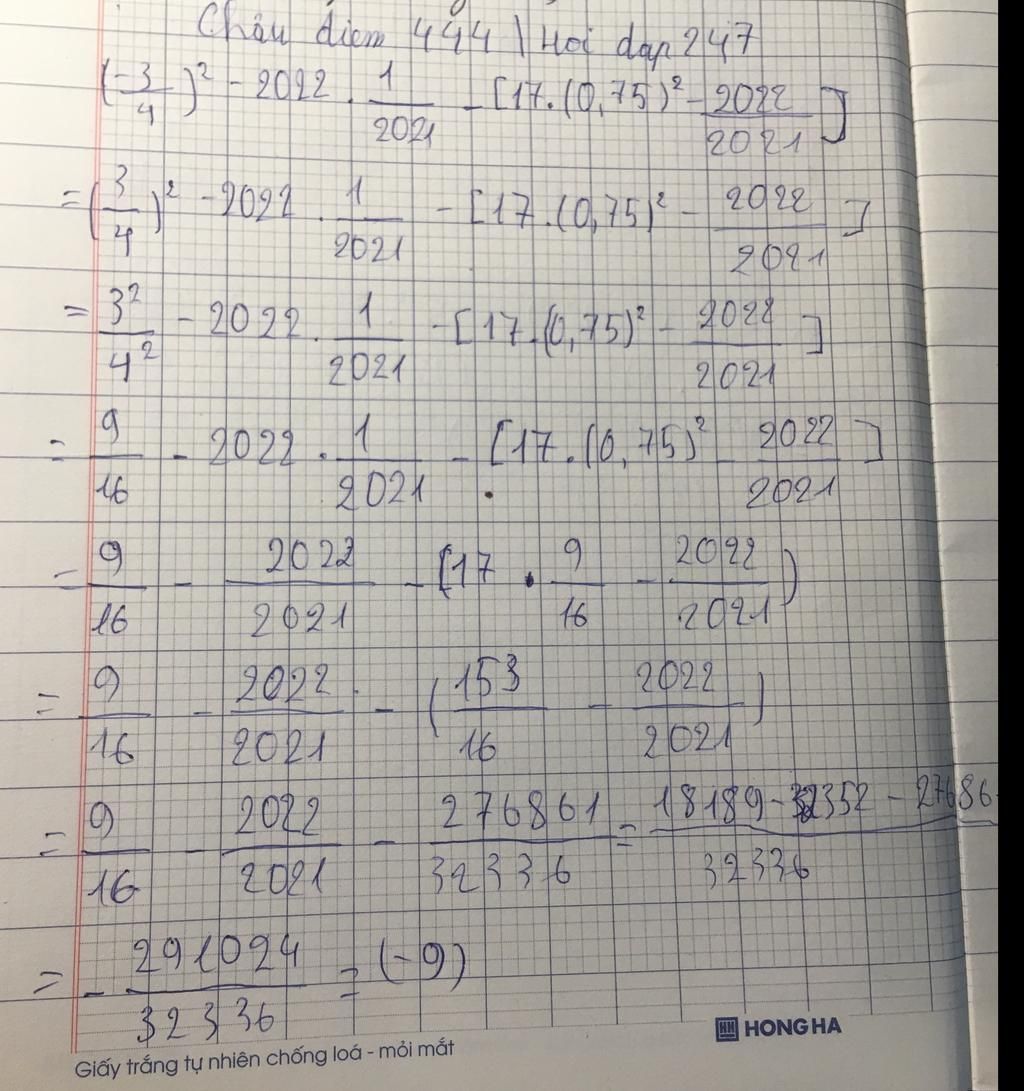 Châu diem 444 | Hoi dap 247
(-3/4)² - 2022 . 1/2021 - [17.(0,75)² - 2022/2021]
= (3/4)² - 2022 . 1/2021 - [17.(0,75)² - 2022/2021]
= 3²/4² - 2022 . 1/2021 - [17.(0,75)² - 2022/2021]
= 9/16 - 2022 . 1/2021 - [17.(0,75)² - 2022/2021]
= 9/16 - 2022/2021 - [17 . 9/16 - 2022/2021)
= 9/16 - 2022/2021 - (153/16 - 2022/2021)
= 9/16 - 2022/2021 - 276861/32336 = 18189-32352-27686/32336
= - 291024/32336 = (-9)
HH HONG HA
Giấy trắng tự nhiên chống loá - mỏi mắt